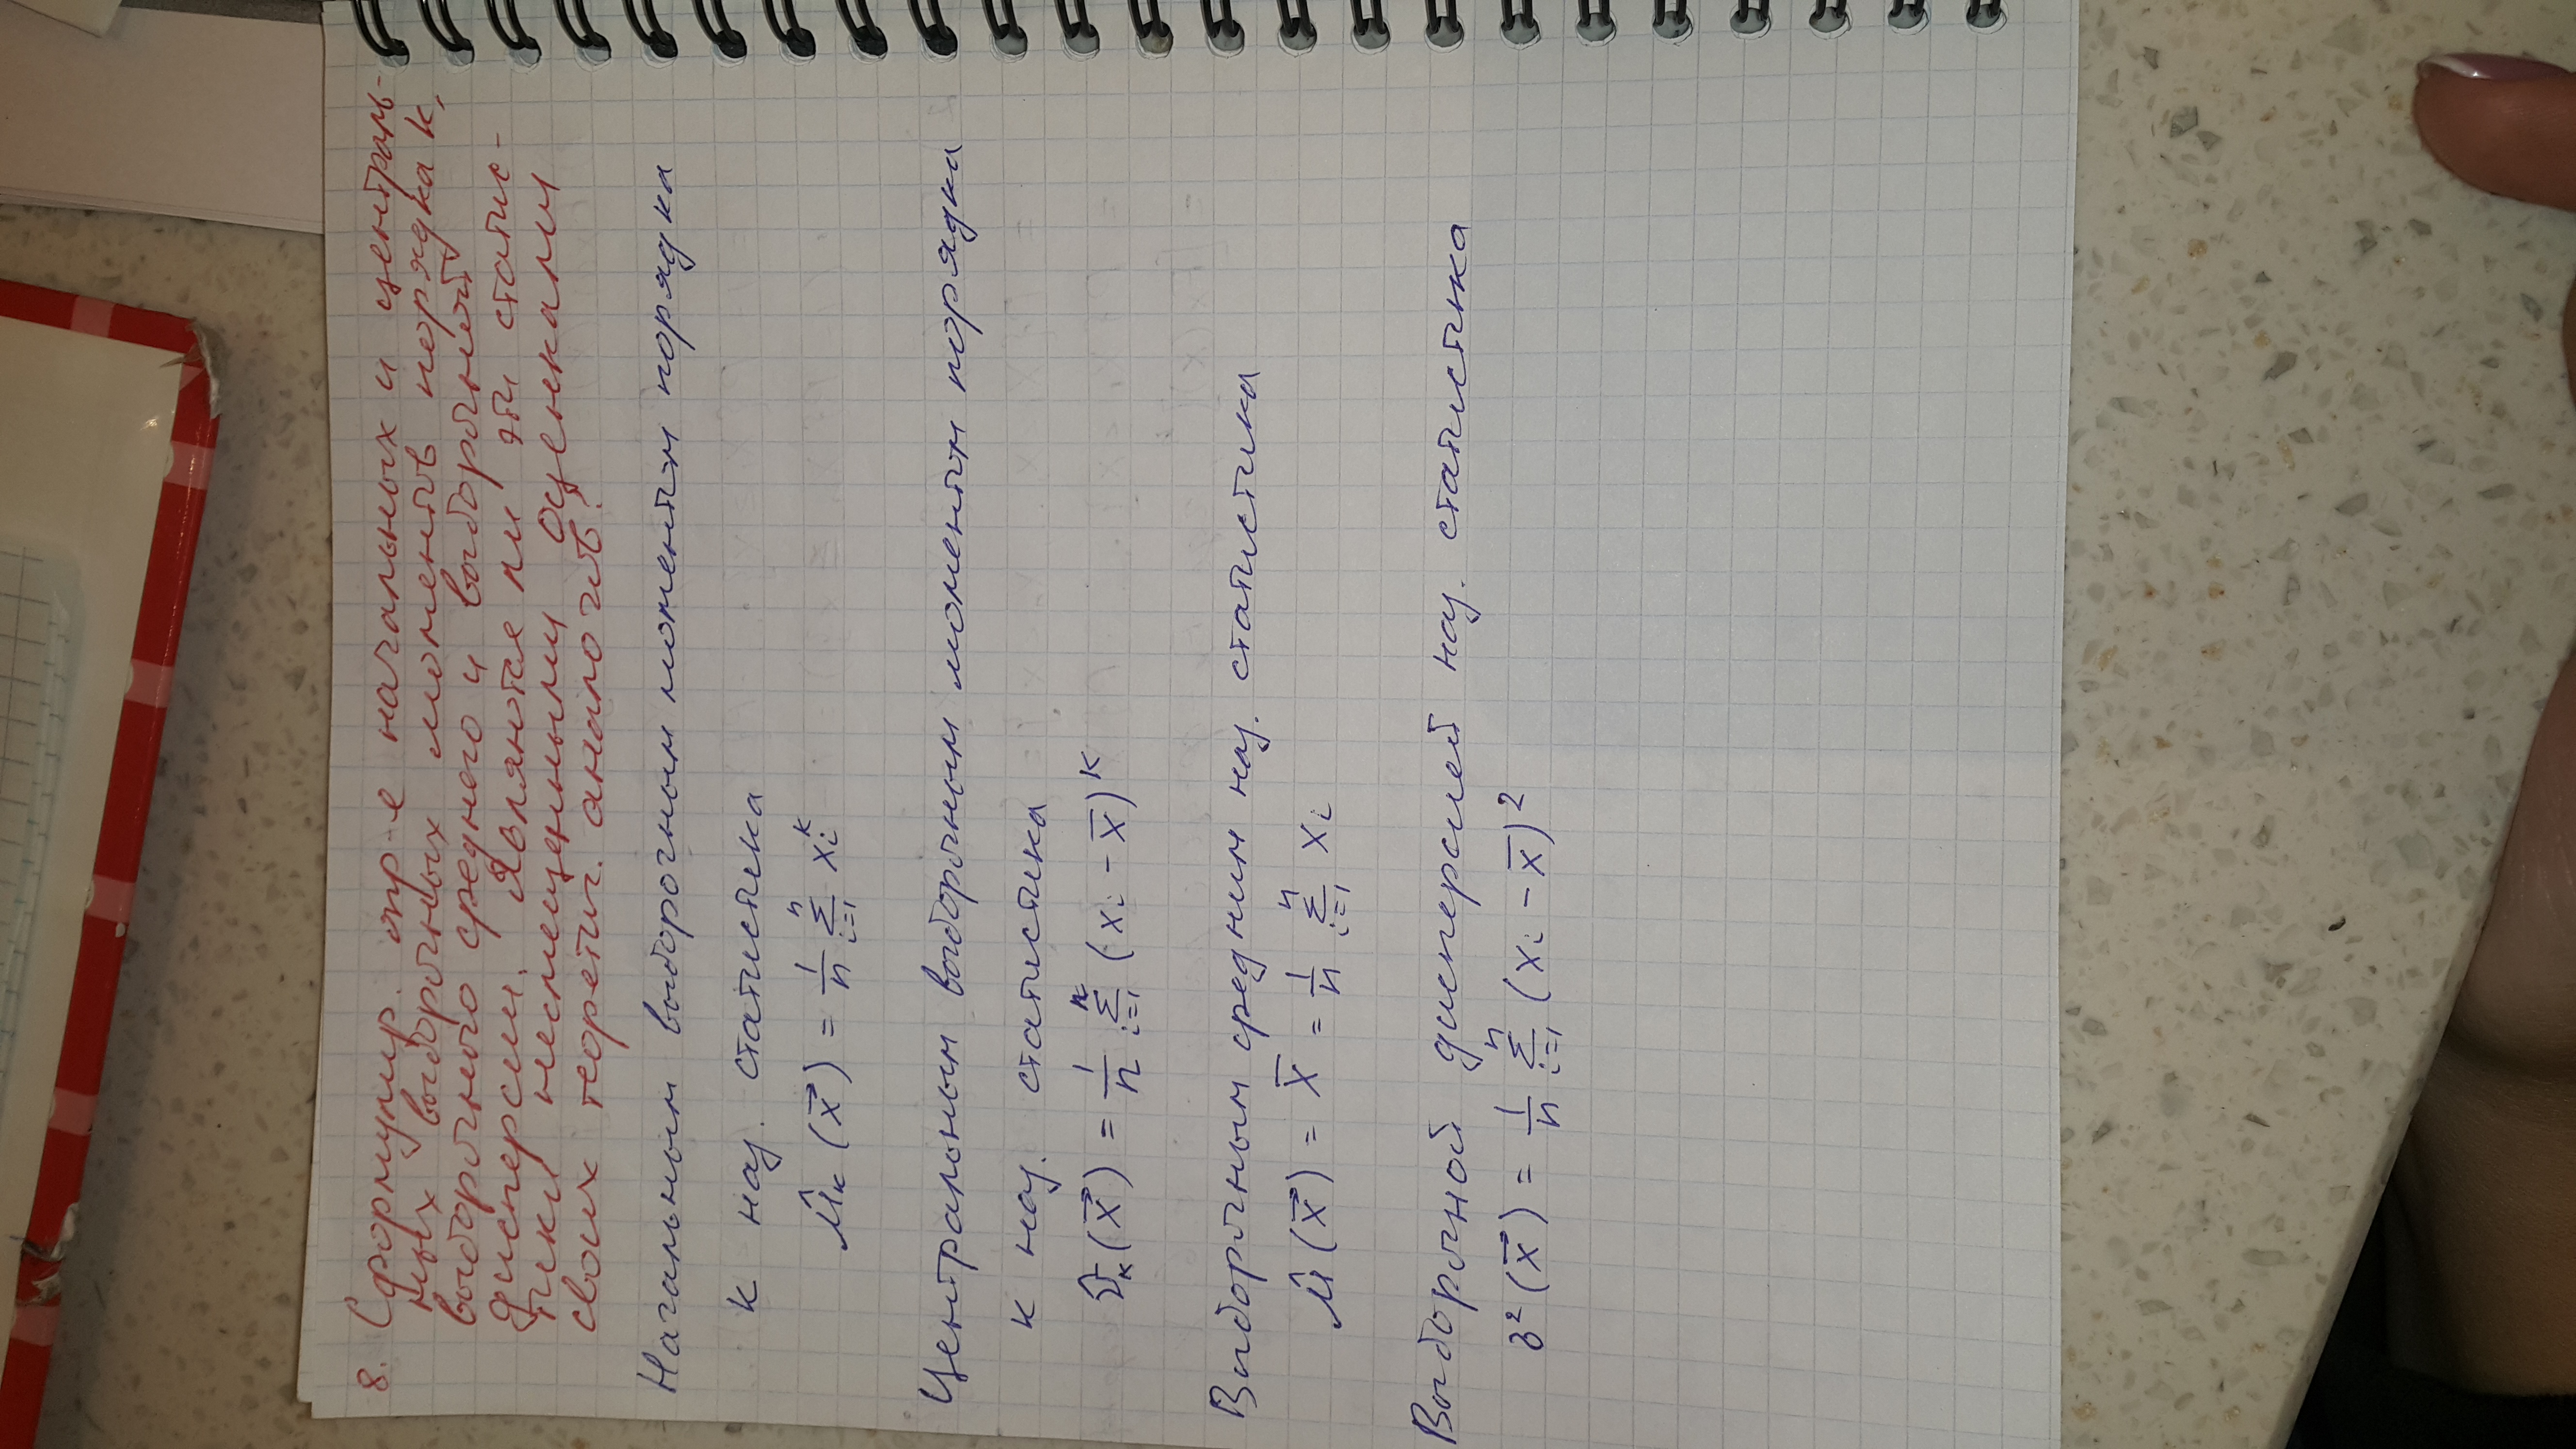 8. Сформулир. опр-е начальных и централь-
ных выборочных моментов порядка k,
выборочного среднего и выборочной
дисперсии. Являются ли эти статис-
тики несмещенными оценками
своих теоретич. аналогов?
Начальным выборочным моментом порядка
k наз. статистика
μ̂ₖ(x⃗) = 1/n Σⁿᵢ₌₁ xᵢᵏ
Центральным выборочным моментом порядка
k наз. статистика
ν̂ₖ(x⃗) = 1/n Σⁿᵢ₌₁ (xᵢ - x̅)ᵏ
Выборочным средним наз. статистика
μ̂(x⃗) = x̅ = 1/n Σⁿᵢ₌₁ xᵢ
Выборочной дисперсией наз. статистика
σ²(x⃗) = 1/n Σⁿᵢ₌₁ (xᵢ - x̅)²